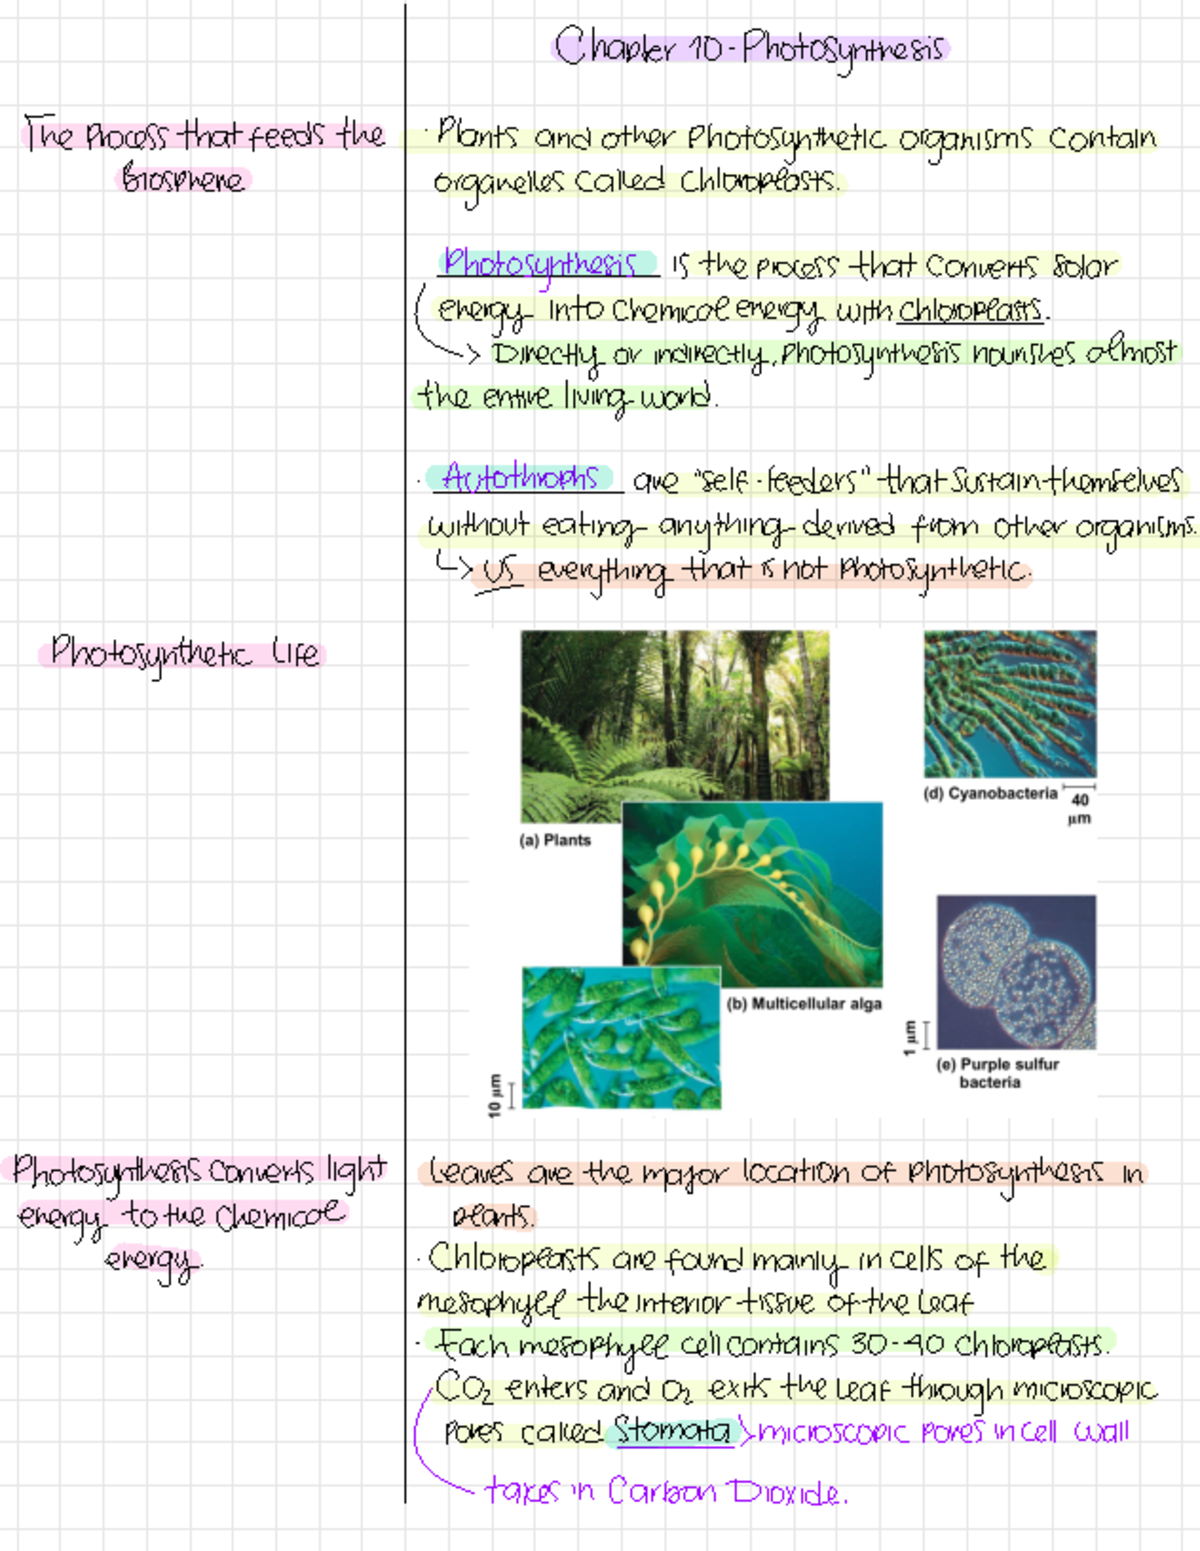 Chapter 10 - Photosynthesis
The Process that feeds the
Biosphere
· Plants and other Photosynthetic organisms contain
organelles called Chloroplasts.
Photosynthesis is the process that converts solar
energy into chemical energy with chloroplasts.
> Directly or indirectly, Photosynthesis nourishes almost
the entire living world.
· Autothrophs are "self-feeders" that sustain themselves
without eating anything derived from other organisms.
↳> US everything that is not Photosynthetic.
Photosynthetic Life
(a) Plants
(d) Cyanobacteria 40
μm
(b) Multicellular alga
1 μm
(e) Purple sulfur
bacteria
10 μm
Photosynthesis converts light
energy to the chemical
energy.
Leaves are the major location of Photosynthesis in
plants.
· Chloroplasts are found mainly in cells of the
mesophyll the interior tissue of the leaf
· Each mesophyll cell contains 30-40 Chloroplasts.
CO₂ enters and O₂ exits the leaf through microscopic
pores called Stomata > microscopic pores in cell wall
takes in Carbon Dioxide.